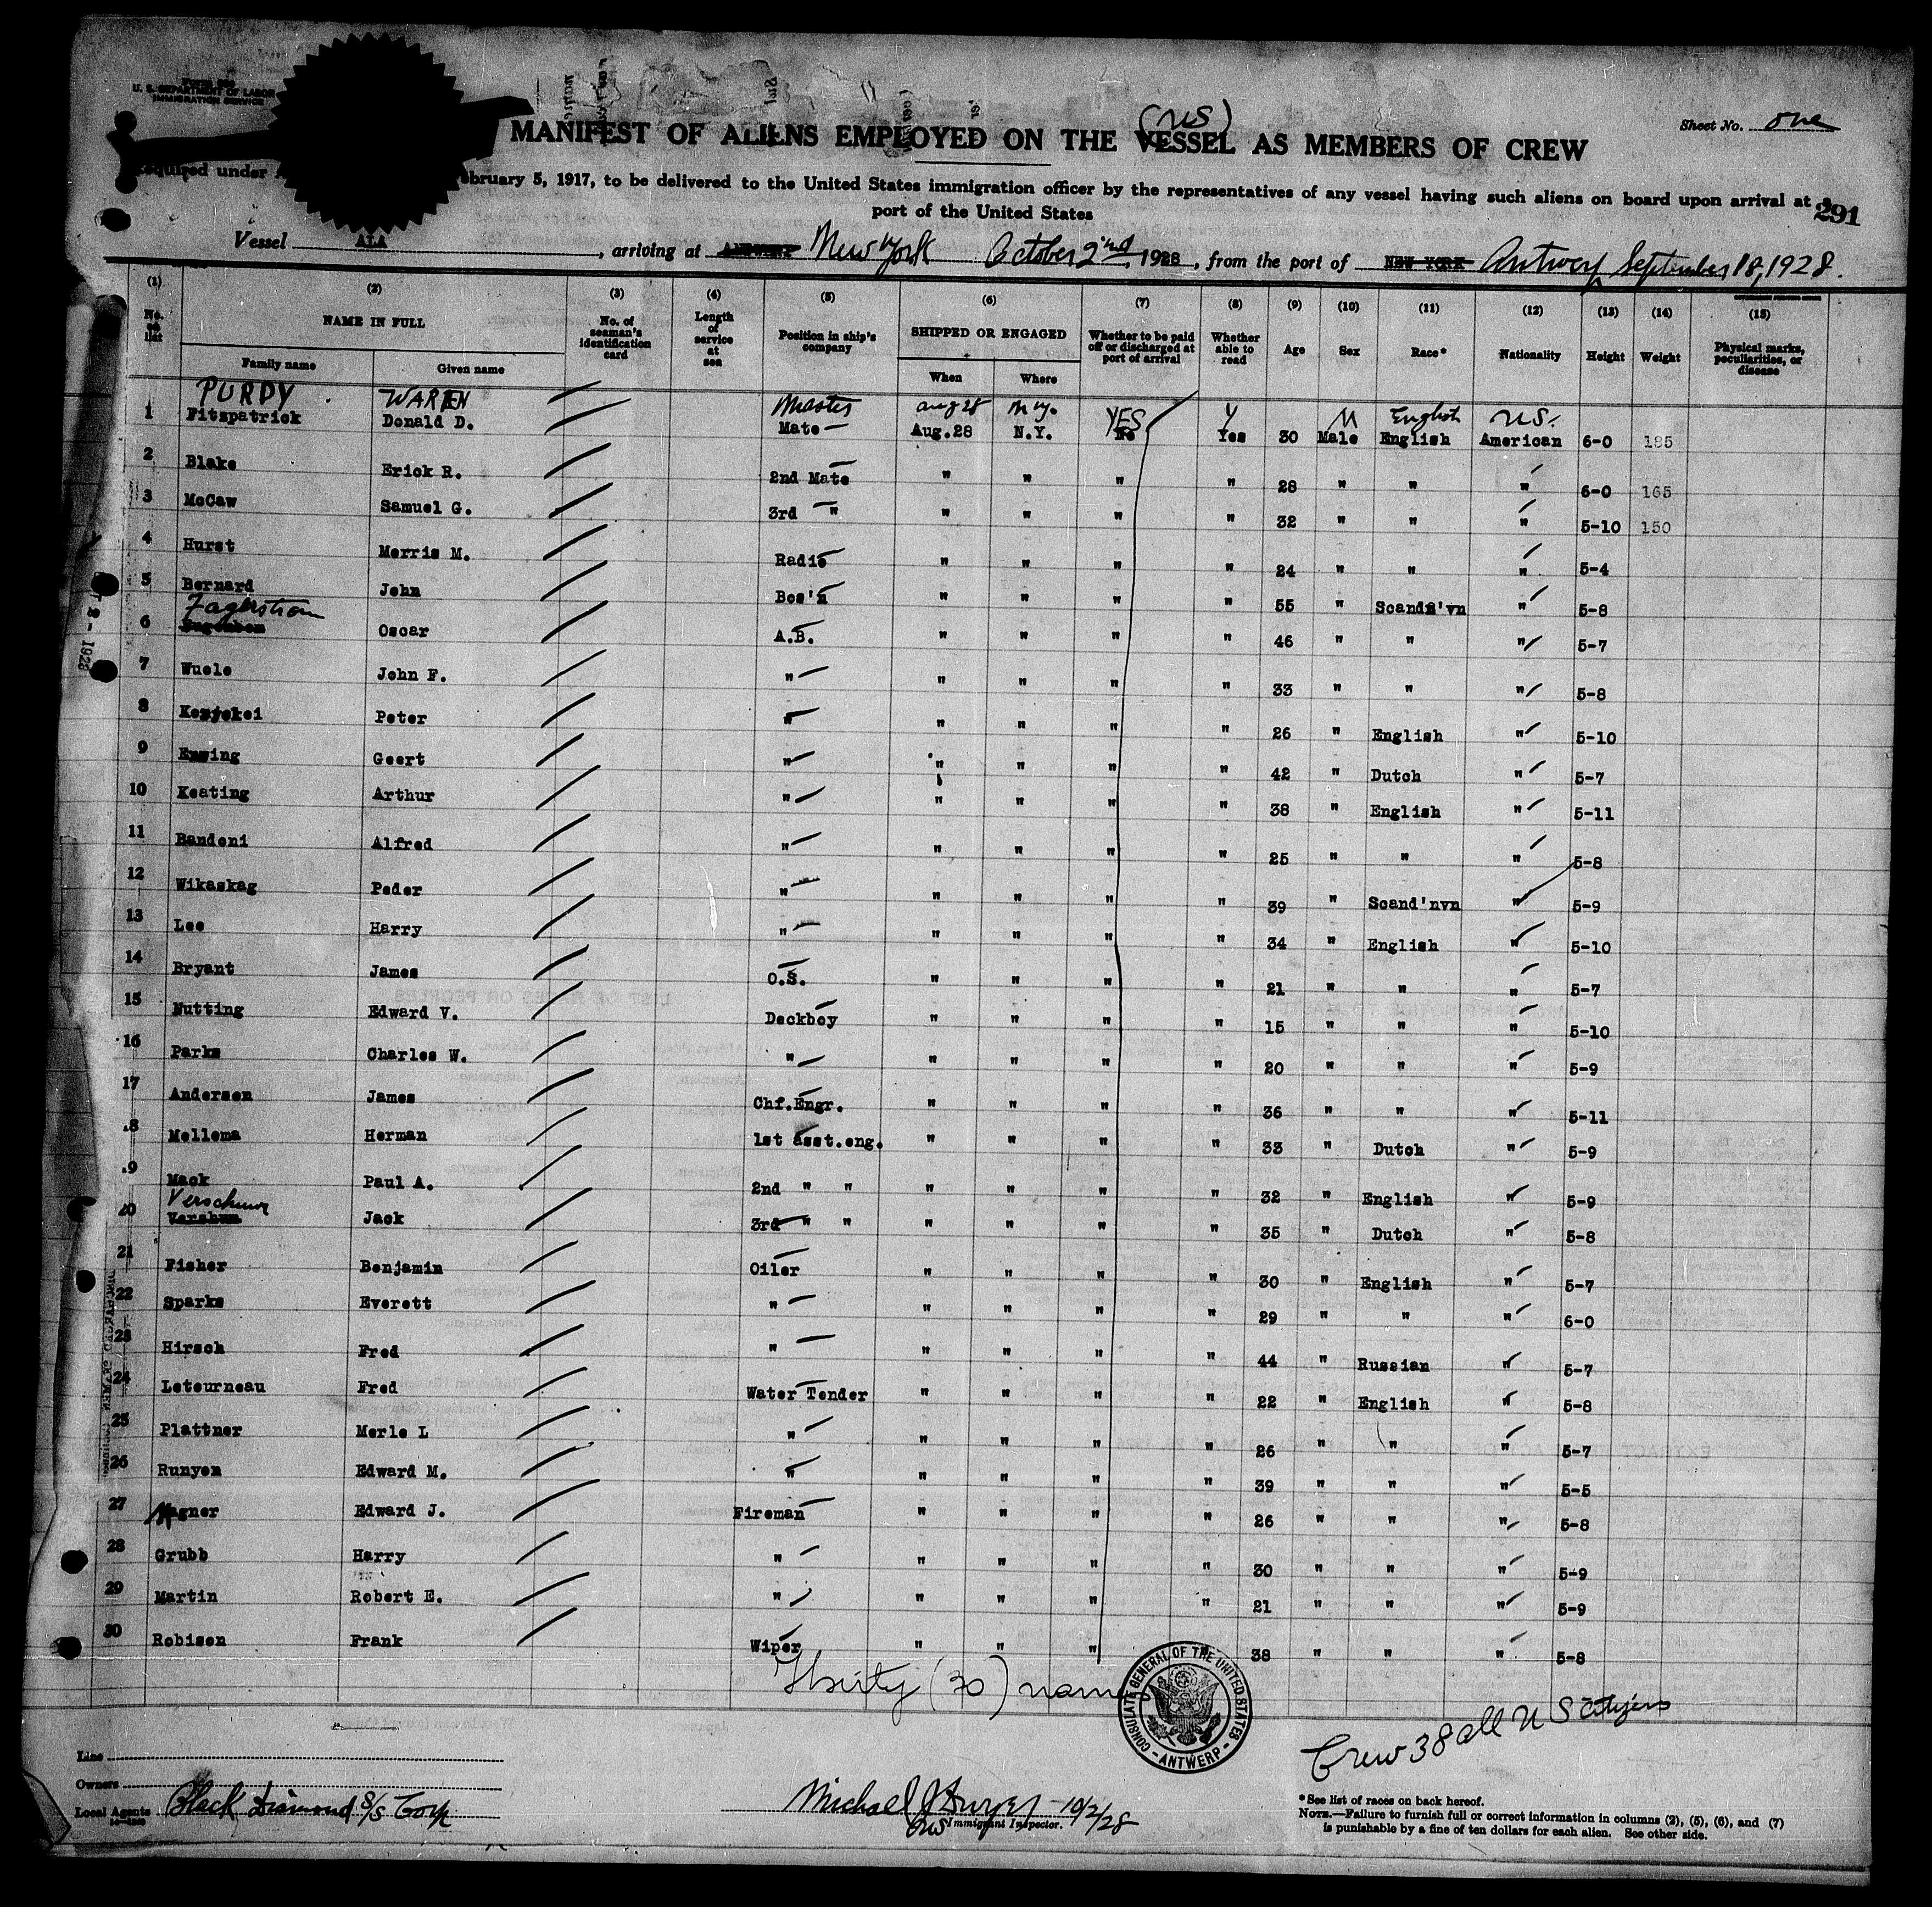 Form 680
U. S. DEPARTMENT OF LABOR
IMMIGRATION SERVICE
(US)
Sheet No. one
MANIFEST OF ALIENS EMPLOYED ON THE VESSEL AS MEMBERS OF CREW
Required under February 5, 1917, to be delivered to the United States immigration officer by the representatives of any vessel having such aliens on board upon arrival at a
port of the United States
291
Vessel ALA, arriving at ANTWERP New York October 2nd, 1928, from the port of NEW YORK Antwerp September 18, 1928.
(1) (2) (3) (4) (5) (6) (7) (8) (9) (10) (11) (12) (13) (14) (15)
No. on list NAME IN FULL No. of seaman's identification card Length of service at sea Position in ship's company SHIPPED OR ENGAGED Whether to be paid off or discharged at port of arrival Whether able to read Age Sex Race* Nationality Height Weight Physical marks, peculiarities, or disease
Family name Given name When Where
PURDY WARREN Master aug 28 n.y. YES Y M English U.S.
1 Fitzpatrick Donald D. Mate Aug.28 N.Y. No Yes 30 Male English American 6-0 185
2 Blake Erick R. 2nd Mate " " " " 28 " " " 6-0 165
3 McCaw Samuel G. 3rd " " " " " 32 " " " 5-10 150
4 Hurst Morris M. Radio " " " " 24 " " " 5-4
5 Bernard John Bos'n " " " " 55 " Scandn'vn " 5-8
Fagerstrom
6 Oscar A.B. " " " " 46 " " " 5-7
7 Wuele John F. " " " " " 33 " " " 5-8
8 Peter " " " " " 26 " English " 5-10
9 Emming Geert " " " " " 42 " Dutch " 5-7
10 Keating Arthur " " " " " 38 " English " 5-11
11 Bandoni Alfred " " " " " 25 " " " 5-8
12 Wikaskag Peder " " " " " 39 " Scand'nvn " 5-9
13 Lee Harry " " " " " 34 " English " 5-10
14 Bryant James O.S. " " " " 21 " " " 5-7
15 Nutting Edward V. Deckboy " " " " 15 " " " 5-10
16 Parks Charles W. " " " " " 20 " " " 5-9
17 Anderson James Chf.Engr. " " " " 36 " " " 5-11
18 Mellema Herman 1st asst.eng. " " " " 33 " Dutch " 5-9
19 Mack Paul A. 2nd " " " " " " 32 " English " 5-9
Verschuur
20 Vershum Jack 3rd " " " " " " 35 " Dutch " 5-8
21 Fisher Benjamin Oiler " " " " 30 " English " 5-7
22 Sparks Everett " " " " " 29 " " " 6-0
23 Hirsch Fred " " " " " 44 " Russian " 5-7
24 Letourneau Fred Water Tender " " " " 22 " English " 5-8
25 Plattner Merle L " " " " " 26 " " " 5-7
26 Runyon Edward M. " " " " " 39 " " " 5-5
27 Wagner Edward J. Fireman " " " " 26 " " " 5-8
28 Grubb Harry " " " " " 30 " " " 5-9
29 Martin Robert E. " " " " " 21 " " " 5-9
30 Robison Frank Wiper " " " " 38 " " " 5-8
Thirty (30) names
CONSULATE GENERAL OF THE UNITED STATES - ANTWERP -
Crew 38 all U S Citizens
Line
Owners
Local Agents Black Diamond S/S Corp
Michael J 10/2/28
Immigrant Inspector.
* See list of races on back hereof.
NOTE.—Failure to furnish full or correct information in columns (2), (5), (6), and (7)
is punishable by a fine of ten dollars for each alien. See other side.